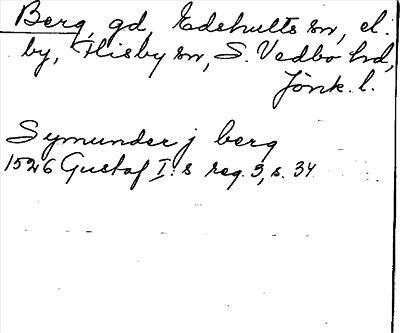 Berg, gd, Edshults sn, el.
by, Flisby sn, S. Vedbo hd,
Jönk. l.
Symunder j berg
1526 Gustaf I:s reg. 3, s. 34